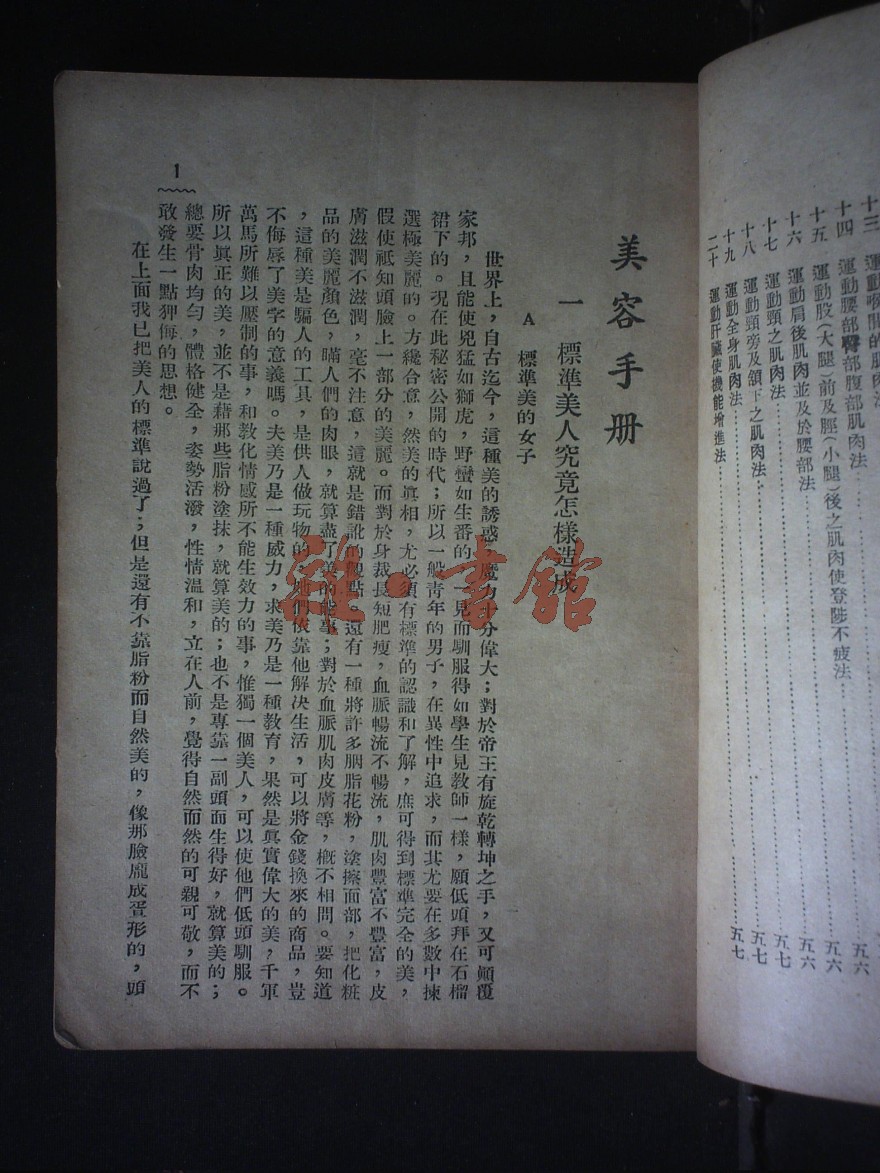 十四 運動腰部臀部腹部肌肉法……五六
十五 運動股(大腿)前及脛(小腿)後之肌肉使登陟不疲法……五六
十六 運動肩後肌肉並及於腰部法……五六
十七 運動頸之肌肉法……五七
十八 運動頸旁及頷下之肌肉法……五七
十九 運動全身肌肉法……五七
二十 運動肝臟使機能增進法……五七
美容手册
一 標準美人究竟怎樣造成
A 標準美的女子
世界上,自古迄今,這種美的誘惑,魔力十分偉大;對於帝王有旋乾轉坤之手,又可顚覆
家邦,且能使兇猛如獅虎,野蠻如生番的一見而馴服得如學生見教師一樣,願低頭拜在石榴
裙下的。現在此秘密公開的時代;所以一般靑年的男子,在異性中追求,而其尤要在多數中揀
選極美麗的。方纔合意,然美的眞相,尤必須有標準的認識和了解,庶可得到標準完全的美,
假使祗知頭臉上一部分的美麗。而對於身裁長短肥瘦,血脈暢流不暢流,肌肉豐富不豐富,皮
膚滋潤不滋潤,毫不注意,這就是錯訛的觀點,還有一種將許多胭脂花粉,塗擦面部,把化粧
品的美麗顏色,瞞人們的肉眼,就算盡了美的能事;對於血脈肌肉皮膚等,槪不相問。要知道
,這種美是騙人的工具,是供人做玩物的,她們依靠他解决生活,可以將金錢換來的商品,豈
不侮辱了美字的意義嗎。夫美乃是一種威力,求美乃是一種教育,果然是眞實偉大的美,千軍
萬馬所難以壓制的事,和教化情感所不能生效力的事,惟獨一個美人,可以使他們低頭馴服。
所以眞正的美,並不是藉那些脂粉塗抹,就算美的;也不是專靠一副頭面生得好,就算美的;
總要骨肉均勻,體格健全,姿勢活潑,性情溫和,立在人前,覺得自然而然的可親可敬,而不
敢發生一點狎侮的思想。
在上面我已把美人的標準說過了;但是還有不靠脂粉而自然美的,像那臉龐成蛋形的,頭
1